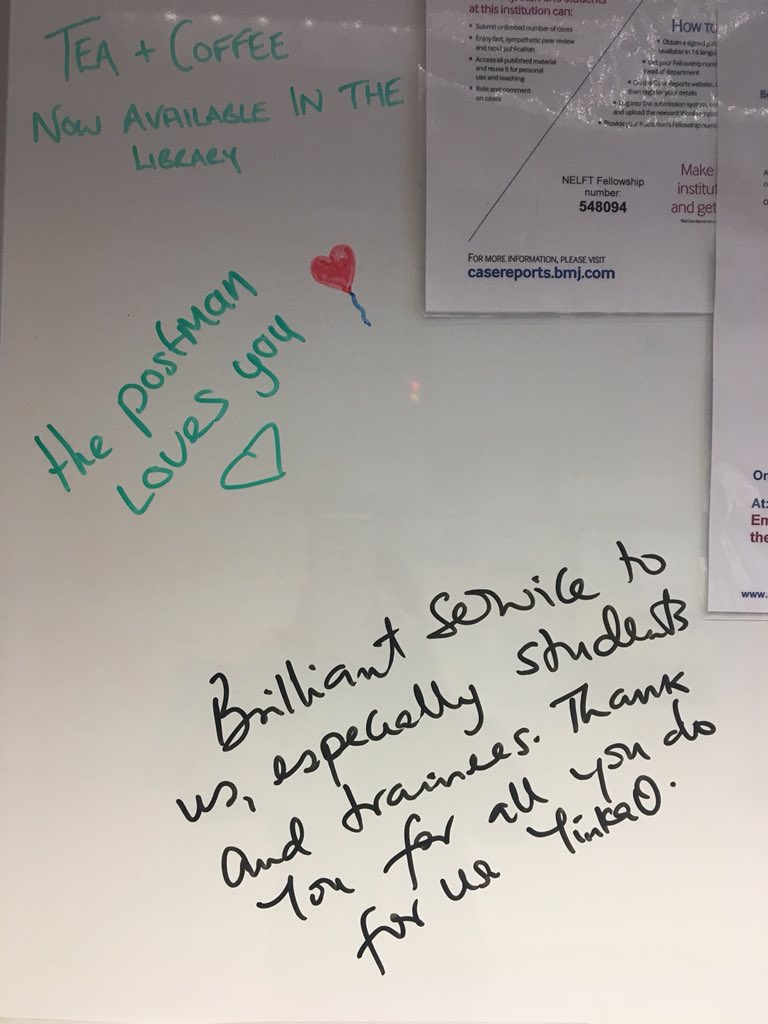 TEA + COFFEE
NOW AVAILABLE IN THE
LIBRARY
the postman
loves you
Brilliant service to
us, especially students
and trainees. Thank
You for all you do
for us YinkaO.
at this institution can:
• Submit unlimited number of cases
• Enjoy fast, sympathetic peer review
and rapid publication
• Access all published material
and reuse it for personal
use and teaching
• Rate and comment
on cases
HOW TO
• Obtain a signed
(available in 16
head of department
Reports website,
register your details
into the submission system,
and upload the relevant Word
NELFT Fellowship
number:
548094
Make
and get
FOR MORE INFORMATION, PLEASE VISIT
casereports.bmj.com
At:
www.